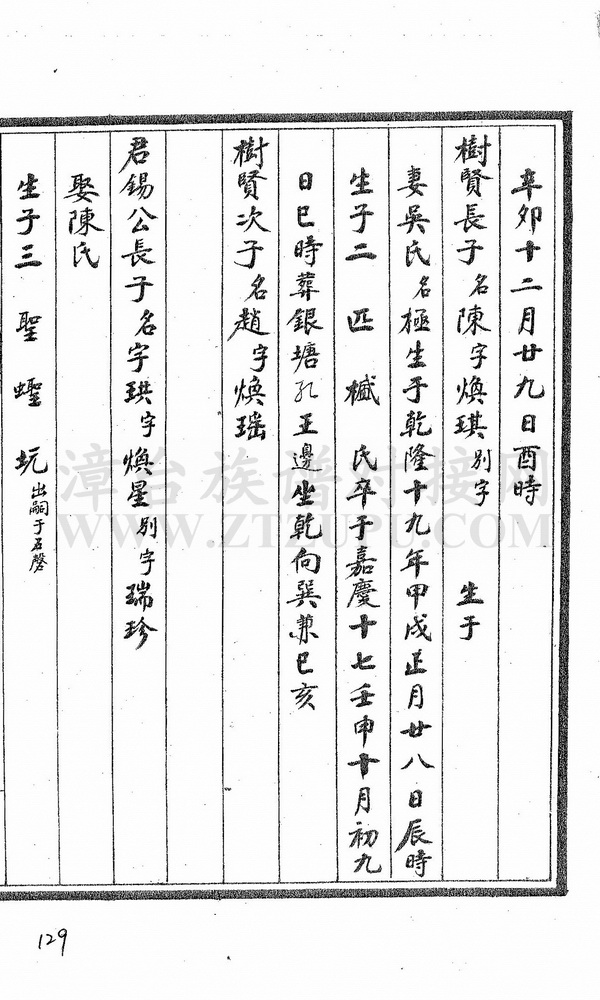 辛卯十二月廿九日酉時
樹賢長子名陳字煥琪別字 生于
妻吳氏名極生于乾隆十九年甲戌正月廿八日辰時
生子二 匹 槭 氏卒于嘉慶十七壬申十月初九
日巳時葬銀塘孔王邊坐乾向巽兼巳亥
樹賢次子名趙字煥瑤
君錫公長子名字珙字煥星別字瑞珍
娶陳氏
生子三 聖 蟶 坃出嗣于石磬
漳台族谱对接网
WWW.ZTZUPU.COM
129